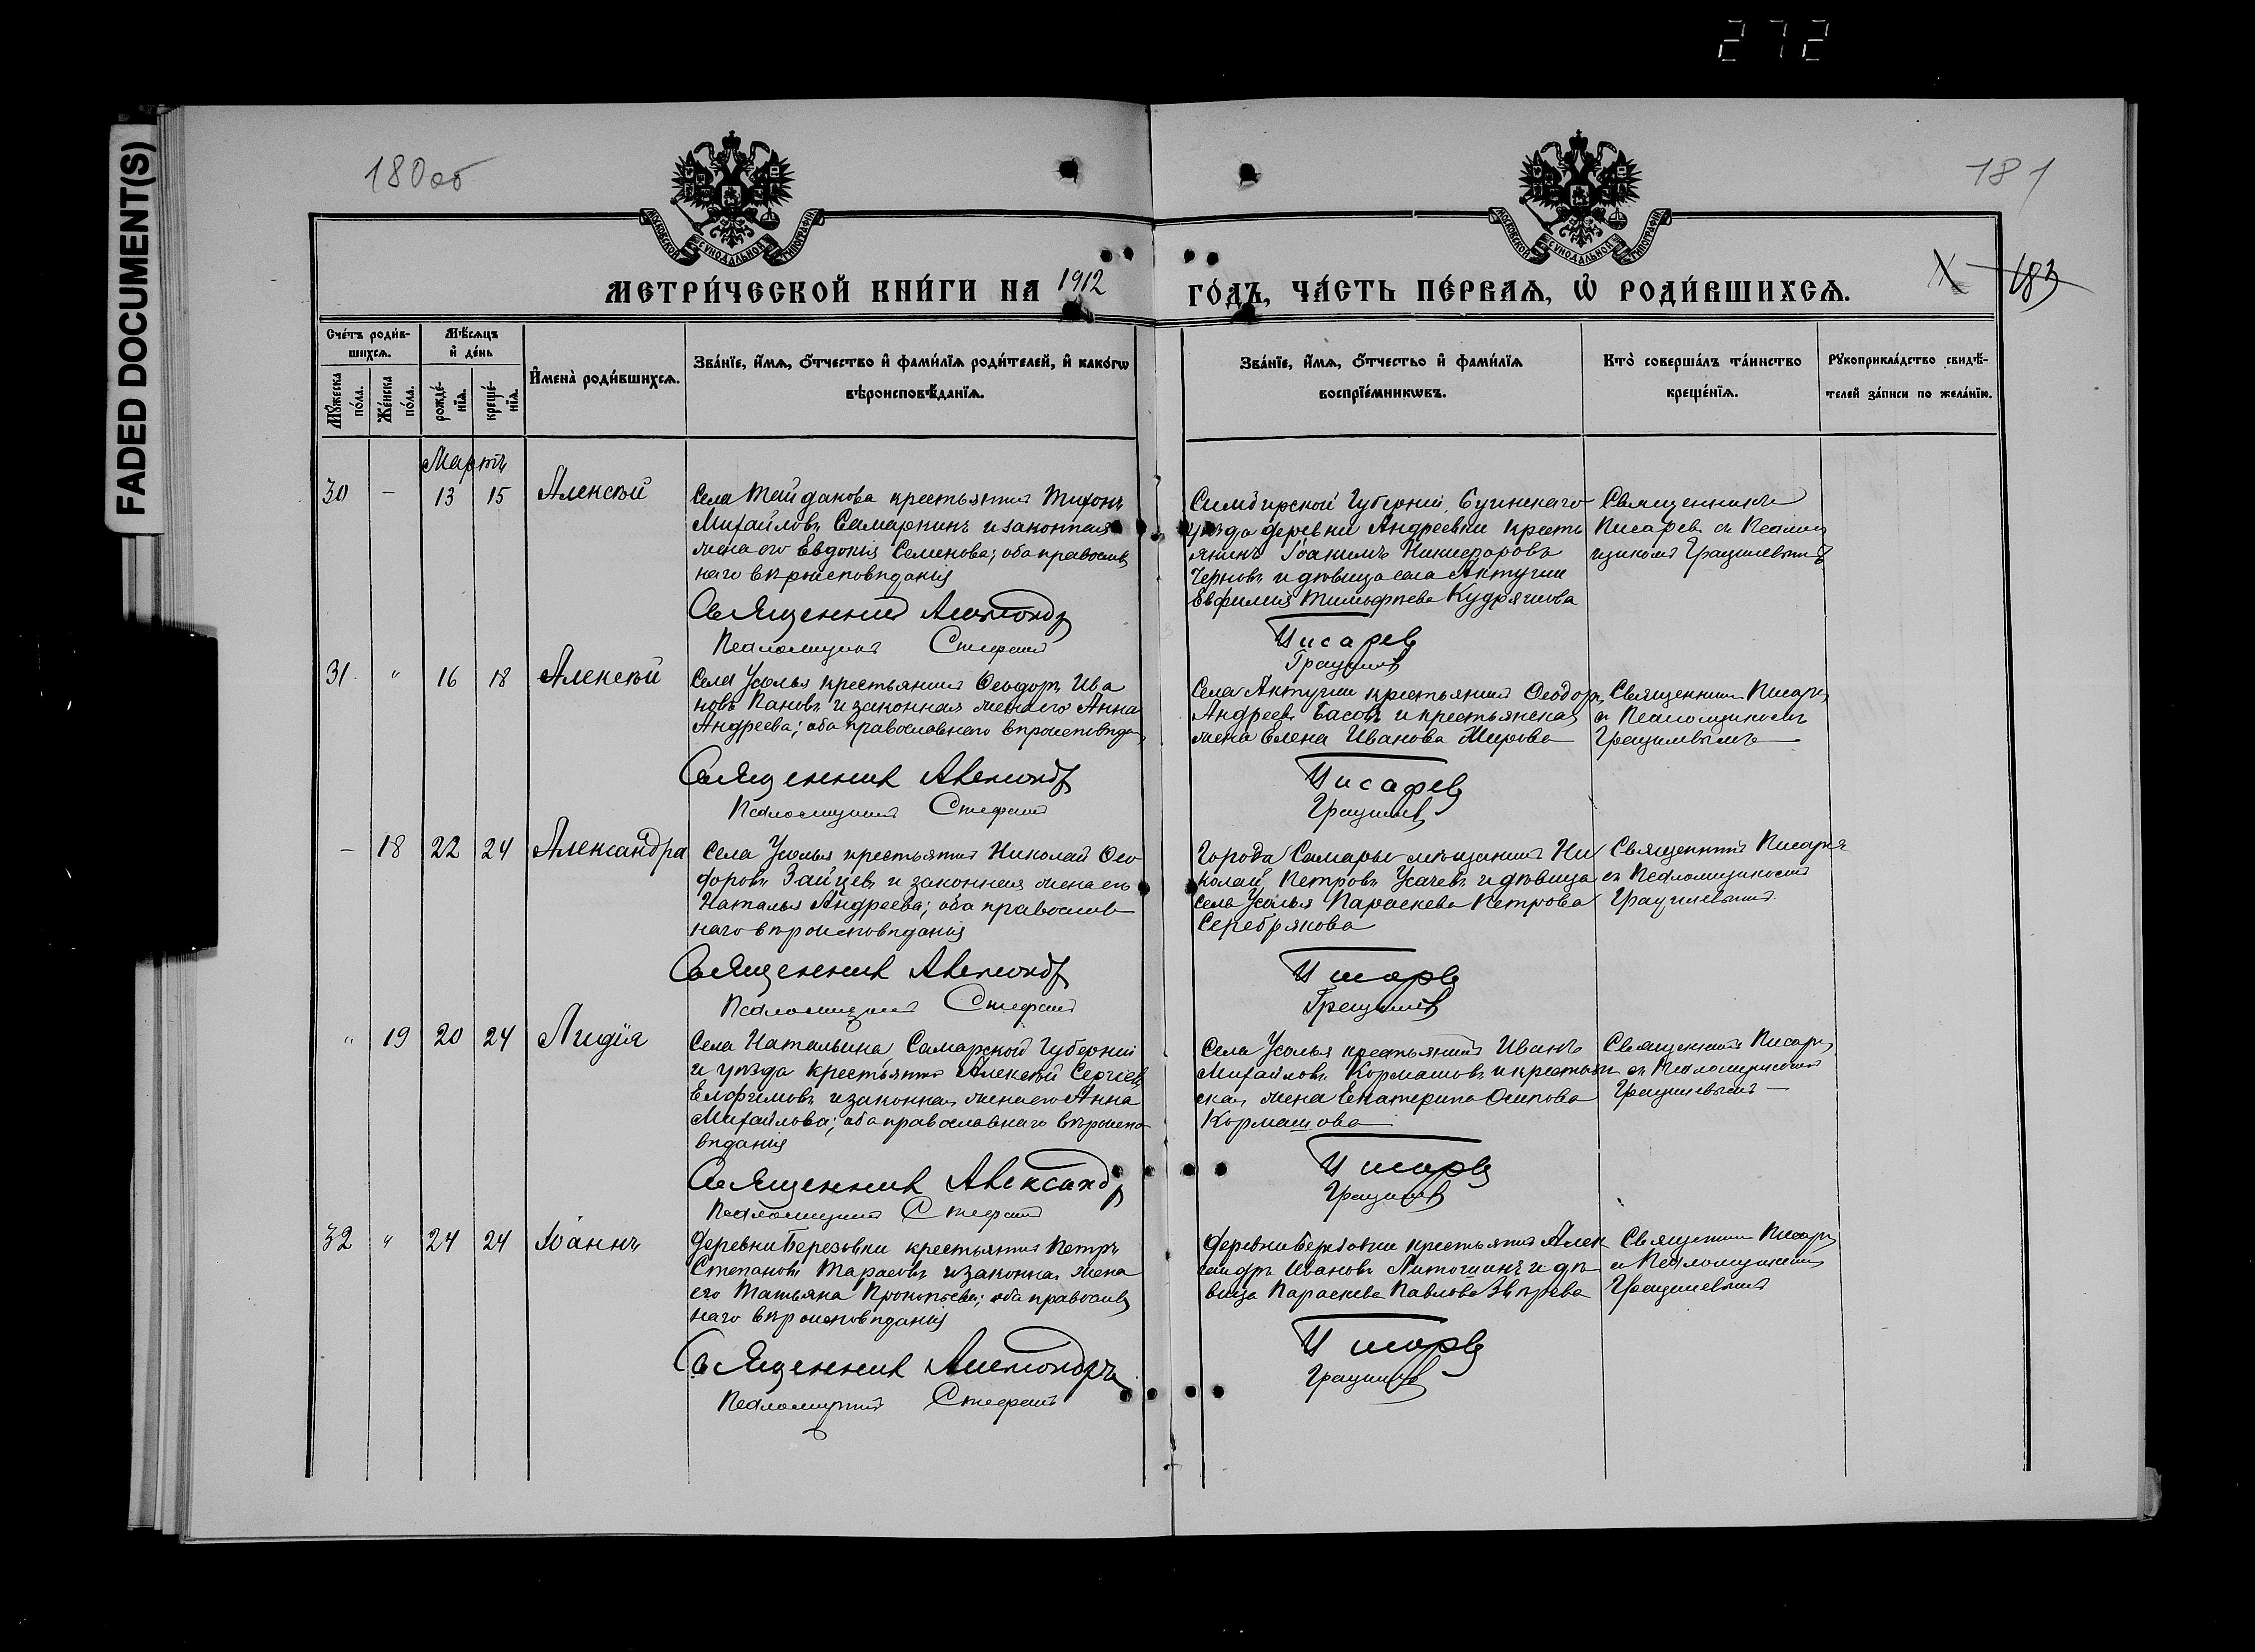 272
FADED DOCUMENT(S)
180об
181
183
МОСКОВСКОЙ СѴНОДАЛЬНОЙ ТИПОГРАФІИ
МОСКОВСКОЙ СѴНОДАЛЬНОЙ ТИПОГРАФІИ
МЕТРИ́ЧЕСКОЙ КНИ́ГИ НА 1912
ГО́ДЪ, ЧА́СТЬ ПЕ́РВАѦ, Ѡ҆ РОДИ́ВШИХСѦ.
Сче́тъ роди́в-
шихсѧ.
Мꙋ́жеска по́ла.
Же́нска по́ла.
Мѣ́сѧцъ
и҆ де́нь
рожде́-нїѧ.
креще́-нїѧ.
И҆мена̀ роди́вшихсѧ.
Зва́нїе, и҆́мѧ, ѻ҆́тчество и҆ фами́лїѧ роди́телей, и҆ како́гѡ
вѣроисповѣ́данїѧ.
Зва́нїе, и҆́мѧ, ѻ҆́тчество и҆ фами́лїѧ
воспрїе́мникѡвъ.
Кто̀ соверша́лъ та́инство
креще́нїѧ.
Рꙋкоприкла́дство свидѣ́-
телей за́писи по жела́нїю.
Мартъ
30 - 13 15 Алексѣй
Села Тайдакова крестьянинъ Тихонъ
Михайловъ Самаркинъ и законная
жена его Евдокія Семенова; оба православ
наго вѣроисповѣданія
Священникъ Александръ
Псаломщикъ Стефанъ
Симбирской Губерніи, Буинскаго
уѣзда деревни Андреевки кресть
янинъ Іоакимъ Никифоровъ
Черновъ и дѣвица села Актуши
Евфимія Тимофѣева Кудряшова
Писаревъ
Грацилевъ
Священникъ
Писаревъ съ Псалом
щикомъ Грацилевымъ
31 " 16 18 Алексѣй
Села Усолья крестьянинъ Ѳеодоръ Ива
новъ Пановъ и законная жена его Анна
Андреева; оба православнаго вѣроисповѣда
Священникъ Александръ
Псаломщикъ Стефанъ
Села Актуши крестьянинъ Ѳеодоръ
Андреевъ Басовъ и крестьянская
жена Елена Иванова Жирова
Писаревъ
Грацилевъ
Священникъ Писаревъ
съ Псаломщикомъ
Грацилевымъ
- 18 22 24 Александра
Села Усолья крестьянинъ Николай Ѳео
доровъ Зайцевъ и законная жена его
Наталья Андреева; оба православ
наго вѣроисповѣданія
Священникъ Александръ
Псаломщикъ Стефанъ
Города Самары мѣщанинъ Ни
колай Петровъ Усачевъ и дѣвица
села Усолья Параскева Петрова
Серебрякова
Писаревъ
Грацилевъ
Священникъ Писаревъ
съ Псаломщикомъ
Грацилевымъ
" 19 20 24 Лидія
Села Натальина Самарской Губерніи
и уѣзда крестьянинъ Алексѣй Сергіевъ
Елфимовъ и законная жена его Анна
Михайлова; оба православнаго вѣроиспо
вѣданія
Священникъ Александръ
Псаломщикъ Стефанъ
Села Усолья крестьянинъ Иванъ
Михайловъ Кормашовъ и крестьян
ская жена Екатерина Осипова
Кормашова
Писаревъ
Грацилевъ
Священникъ Писаревъ
съ Псаломщикомъ
Грацилевымъ
32 " 24 24 Іоаннъ
Деревни Березовки крестьянинъ Петръ
Степановъ Тарасовъ и законная жена
его Татьяна Прокопьева; оба православ
наго вѣроисповѣданія
Священникъ Александръ
Псаломщикъ Стефанъ
Деревни Березовки крестьянинъ Алек
сандръ Ивановъ Литошинъ и дѣ
вица Параскева Павлова Звѣрева
Писаревъ
Грацилевъ
Священникъ Писаревъ
съ Псаломщикомъ
Грацилевымъ